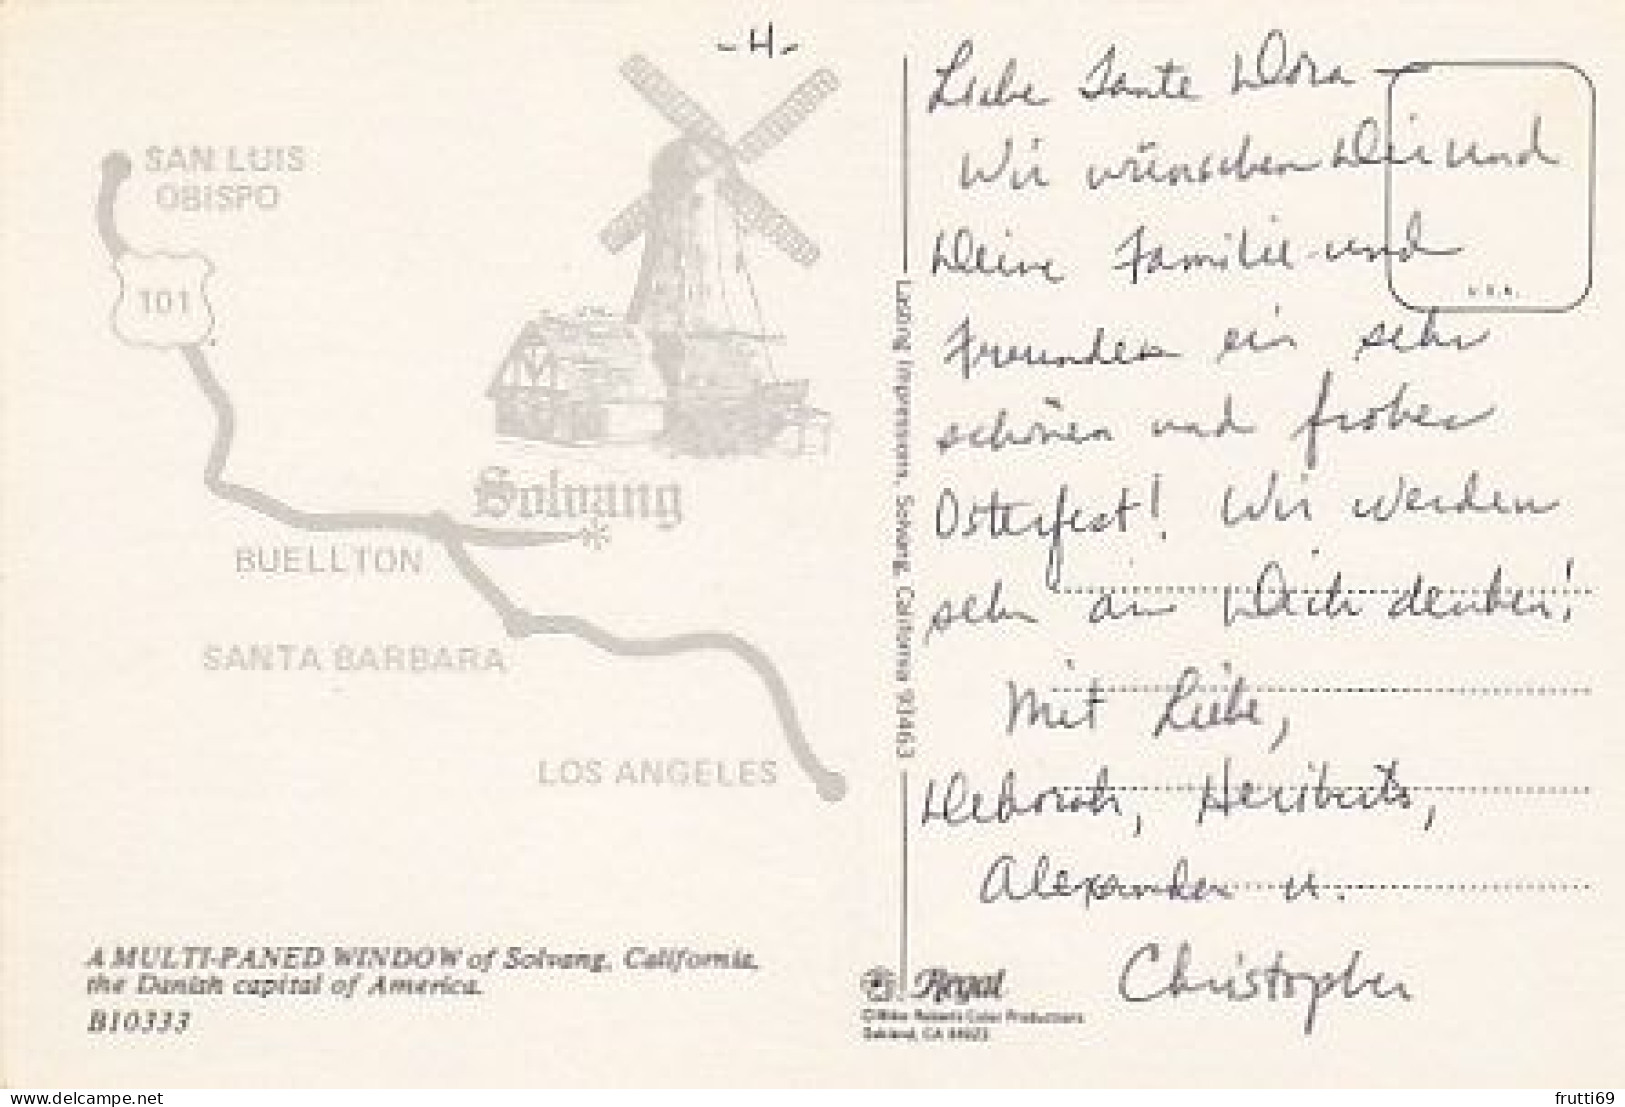 -4-
SAN LUIS
OBISPO
101
Solvang
BUELLTON
SANTA BARBARA
LOS ANGELES
A MULTI-PANED WINDOW of Solvang, California,
the Danish capital of America.
B10333
Lasting Impressions, Solvang, California 93463
Regal
©Mike Roberts Color Productions
Oakland, CA 94623
U.S.A.
Liebe Tante Dora —
Wir wünschen Dir und
Deine Familie und
Freunden ein sehr
schönen und froher
Osterfest! Wir werden
sehr an Dich denken!
Mit Liebe,
Deborah, Heriberto,
Alexander u.
Christopher
delcampe.net
frutti69